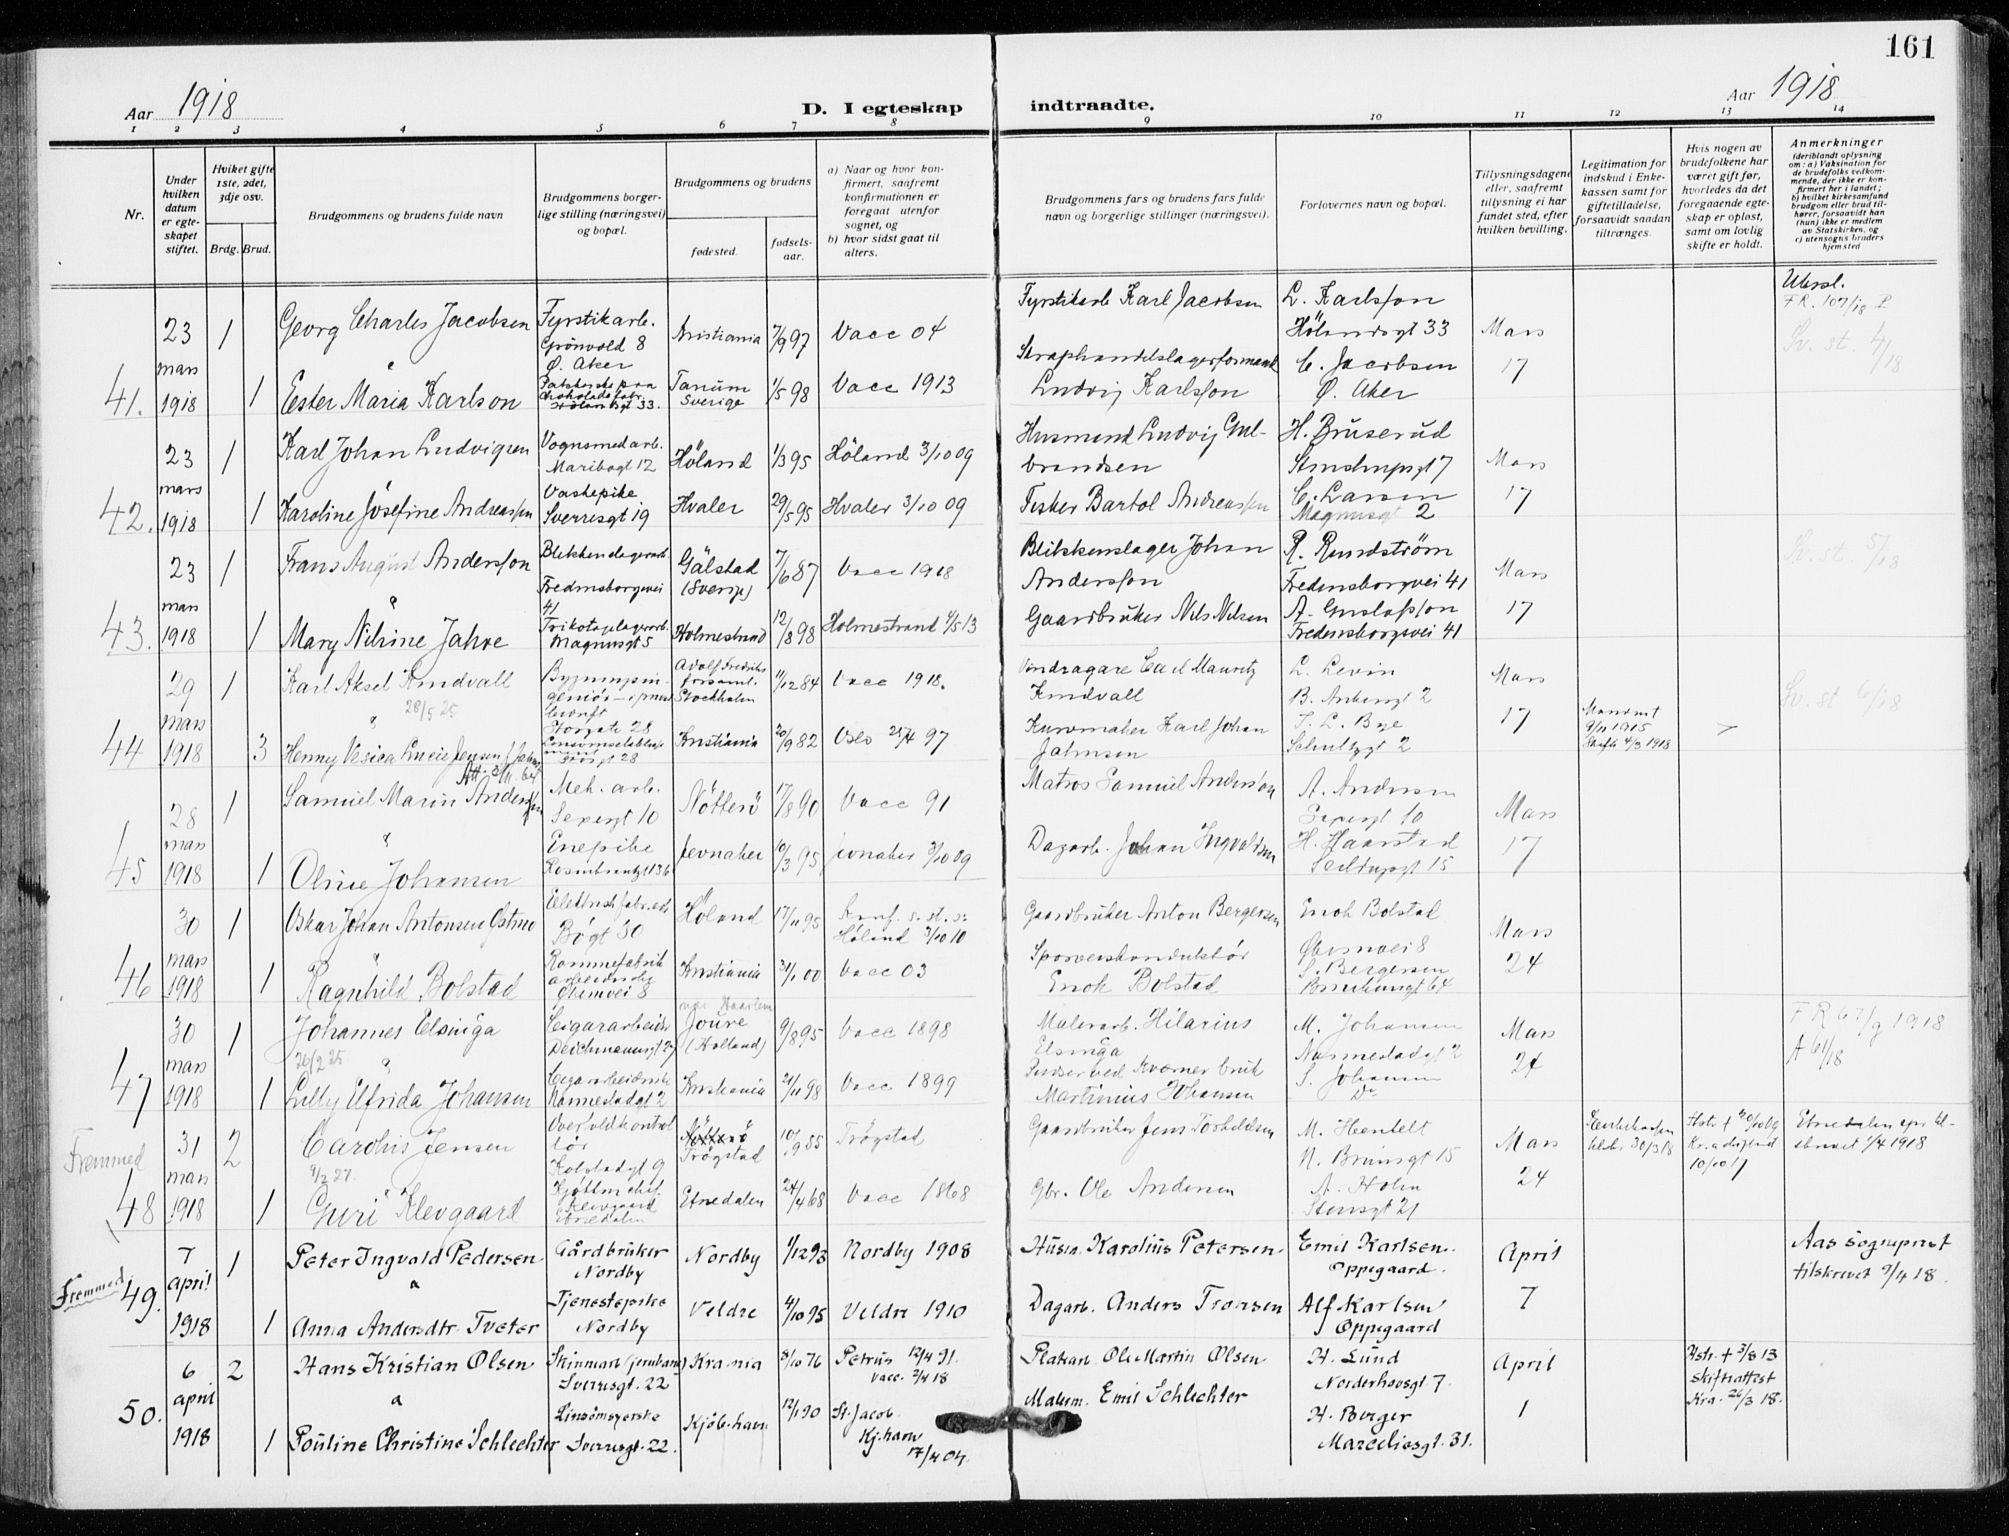 161
Aar 1918
D. I egteskap indtraadte.
Aar 1918
1 2 3 4 5 6 7 8 9 10 11 12 13 14
Nr.
Under hvilken datum er egteskapet stiftet.
Hviket gifte 1ste, 2det, 3dje osv.
Brdg. Brud.
Brudgommens og brudens fulde navn
Brudgommens borgerlige stilling (næringsvei) og bopæl.
Brudgommens og brudens
fødested.
fødselsaar.
a) Naar og hvor konfirmert, saafremt konfirmationen er foregaat utenfor sognet, og
b) hvor sidst gaat til alters.
Brudgommens fars og brudens fars fulde navn og borgerlige stillinger (næringsvei).
Forlovernes navn og bopæl.
Tillysningsdagene eller, saafremt tillysning ei har fundet sted, efter hvilken bevilling.
Legitimation for indskud i Enkekassen samt for giftetilladelse, forsaavidt saadan tiltrænges.
Hvis nogen av brudefolkene har været gift før, hvorledes da det foregaaende egteskap er opløst, samt om lovlig skifte er holdt.
Anmerkninger
(deriblandt oplysning om: a) Vaksination for de brudefolks vedkommende, der ikke er konfirmert her i landet; b) hvilket kirkesamfund brudgom eller brud tilhører, forsaavidt han (hun) ikke er medlem av Statskirken, og c) utensogns bruders hjemsted
41. 23 mars 1918 1 Georg Charles Jacobsen Fyrstikarb. Grønvold 8 Ø. Aker Kristiania 7/9 97 Vacc 04 Fyrstikarb Karl Jacobsen L. Karlsson Hölandsgt 33 Mars 17 F R. 107/18
1 Ester Maria Karlson Tanum Sverige 1/5 98 Vacc 1913 Ludvig Karlsson C. Jacobsen Ø. Aker Sv. st. 4/18
42. 23 mars 1918 1 Karl Johan Ludvigsen Vognsmedarb. Maribogt 12 Höland 1/3 95 Höland 3/10 09 Husmand Ludvig Gulbrandsen H. Bruserud Mars 17
1 Karoline Josefine Andreassen Vaskepike Sverresgt 19 Hvaler 29/5 95 Hvaler 3/10 09 Fisker Bartol Andreassen C. Larsen Magnusgt 2
43. 23 mars 1918 1 Frans August Andersson Blikkenslagerarb. Fredensborgvei 41 Gälstad (Sverige) 7/6 87 Vacc 1918 Blikkenslager Johan Andersson R. Rundström Fredensborgvei 41 Mars 17 Sv. st. 5/18
1 Mary Nilsine Jahre Trikotagelagerarb. Magnusgt 5 Holmestrand 12/8 98 Holmestrand 4/5 13 Gaardbruker Nils Nilsen A. Gustafsson Fredensborgsvei 41
44 29 mars 1918 1 Karl Aksel Kindvall 28/5 25 Adolf Fredriks forsaml. Stockholm 11/12 84 Vacc 1918. Vindragare Carl Mauritz Kindvall L. Levin Mars 17 Sv. st 6/18
3 Storgate 28 Kristiania 20/9 82 Oslo 25/4 97 Kurvmaker Karl Johan Jahnsen T. L. Bye Schultzgt 2 9/11 1915 Skifte 4/3 1918
45 28 mars 1918 1 Samuel Marin Anderssen Mek. arb. Sexesgt 10 Nötterö 17/8 90 Vacc 91 Matros Samuel Anderson A. Andersen Sexesgt 10 Mars 17
1 Oline Johansen Enepike Jevnaker 10/3 95 Jevnaker 3/10 09 Dagarb. Johan Ingvaldsen H. Haarstad Seildugsgt 15
46 30 mars 1918 1 Oskar Johan Antonsen Østmo Bögt 30 Höland 17/11 95 Höland 3/10 10 Gaardbruker Anton Bergersen Enok Bolstad Mars 24
1 Ragnhild Bolstad Kristiania 31/1 00 Vacc 03 Sporveiskonduktör Enok Bolstad S. Bergersen
47 30 mars 1918 1 Johannes Elsinga 26/2 25 Deichmannsgt 27 nær Haarlem Joure (Holland) 9/8 95 Vacc 1898 Malerarb. Hilarius Elsinga M. Johansen Nannestadgt 2 Mars 24 F R 67/g 1918 A 61/18
1 Lilly Elfrida Johansen Cigararbeiderske Nannestadgt 2 Kristiania 21/11 98 Vacc 1899 Martinius Johansen S. Johansen Do
Fremmed 48 31 mars 1918 2 Carolus Jensen 9/2 27 Kolstadgt 9 Nötterö Trøgstad 10/9 85 Trøgstad Gaardbruker Jens Torkildsen M. Henkelt N. Brunsgt 15 Mars 24 30/3 18 10/10 17 Etnedalen 1/4 1918
1 Guri Klevgaard Klevgaard Etnedalen 24/4 68 Vacc 1868 Gbr. Ole Andersen A. Holm Stensgt 21
Fremmed 49. 7 april 1918 1 Peter Ingvald Pedersen Gårdbruker Nordby Nordby 1/12 93 Nordby 1908 Husm. Karolius Petersen Emil Karlsen. Oppegaard. April 7 Aas sogneprest tilskrevet 9/4 18.
1 Anna Andersdtr. Tveter Tjenestepike Nordby Veldre 4/10 95 Veldre 1910 Dagarb. Anders Tronsen Alf Karlsen Oppegaard
50. 6 april 1918 2 Hans Kristian Olsen Sverresgt. 22 Kra-nia 8/10 76 Petrus 12/4 91. Vacc. 3/4 18 Platearb. Ole Martin Olsen H. Lund Norderhovsgt 7. April 1 Hstr. + 3/8 13 skifteattest Kra. 26/3 18.
1 Pouline Christine Schlechter Linsömmerske Sverresgt. 22. Kjöb-havn 12/1 90 St. Jacob Kj.havn 17/4 04. Malerm. Emil Schlechter H. Berger Marceliesgt. 31.